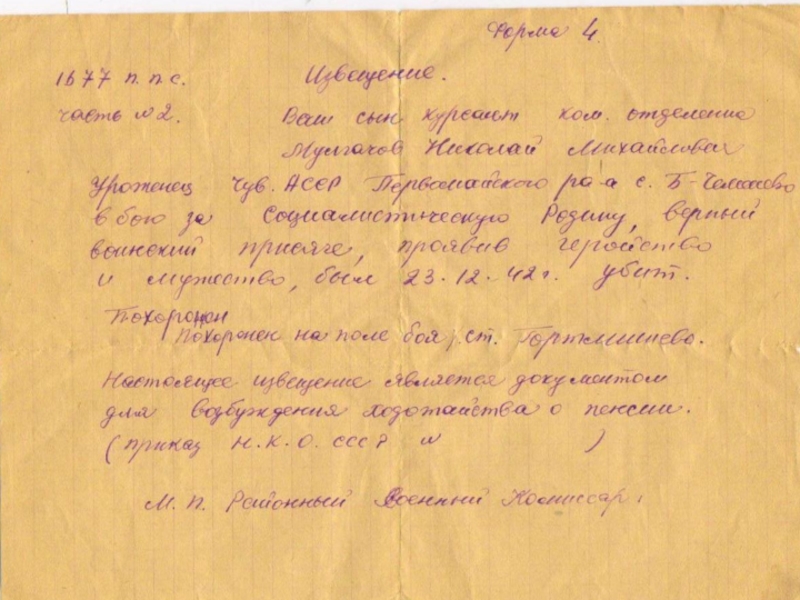 Форма 4.
1677 п.п.с. Извещение.
часть №2. Ваш сын курсант ком. отделение
Мулгачов Николай Михайлович
Уроженец Чув. АССР Первомайского ра-а с. Б-
в бою за Социалистическую Родину, верный
воинский присяге, проявив геройство
и мужество, был 23.12.42г. убит.
Похоронен
Похоронен на поле боя, ст.
Настоящее извещение является документом
для возбуждения ходотайства о пенсии.
(приказ Н.К.О. СССР № )
М.П. Районный Военный Комиссар.